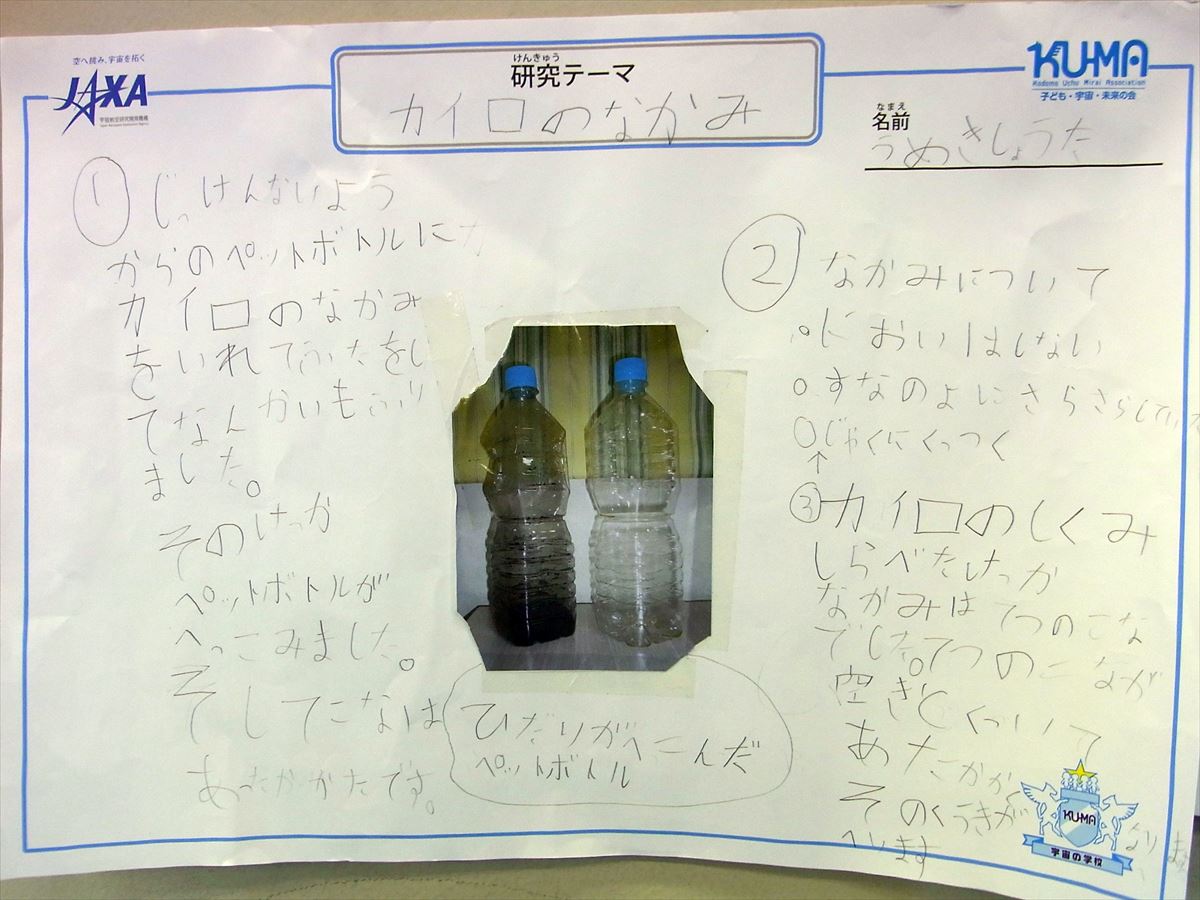 空へ挑み、宇宙を拓く
JAXA
宇宙航空研究開発機構
Japan Aerospace Exploration Agency
けんきゅう
研究テーマ
カイロのなかみ
KU-MA
Kodomo Uchu Mirai Association
子ども・宇宙・未来の会
なまえ
名前
うめきしょうた
① じっけんないよう
からのペットボトルにカ
カイロのなかみ
をいれてふたをし
てなんかいもふり
ました。
そのけっか
ペットボトルが
へっこみました。
そしてこなは
あったかかたです。
ひだりがへこんだ
ペットボトル
② なかみについて
。においはしない
○すなのよにさらさらしていた
○じゃくにくっつく
↑
③カイロのしくみ
しらべたけっか
なかみはてつのこな
でした。てつのこなが
空きとくっついて
あたたかくなりま
そのくうきが
へします
KU-MA
宇宙の学校